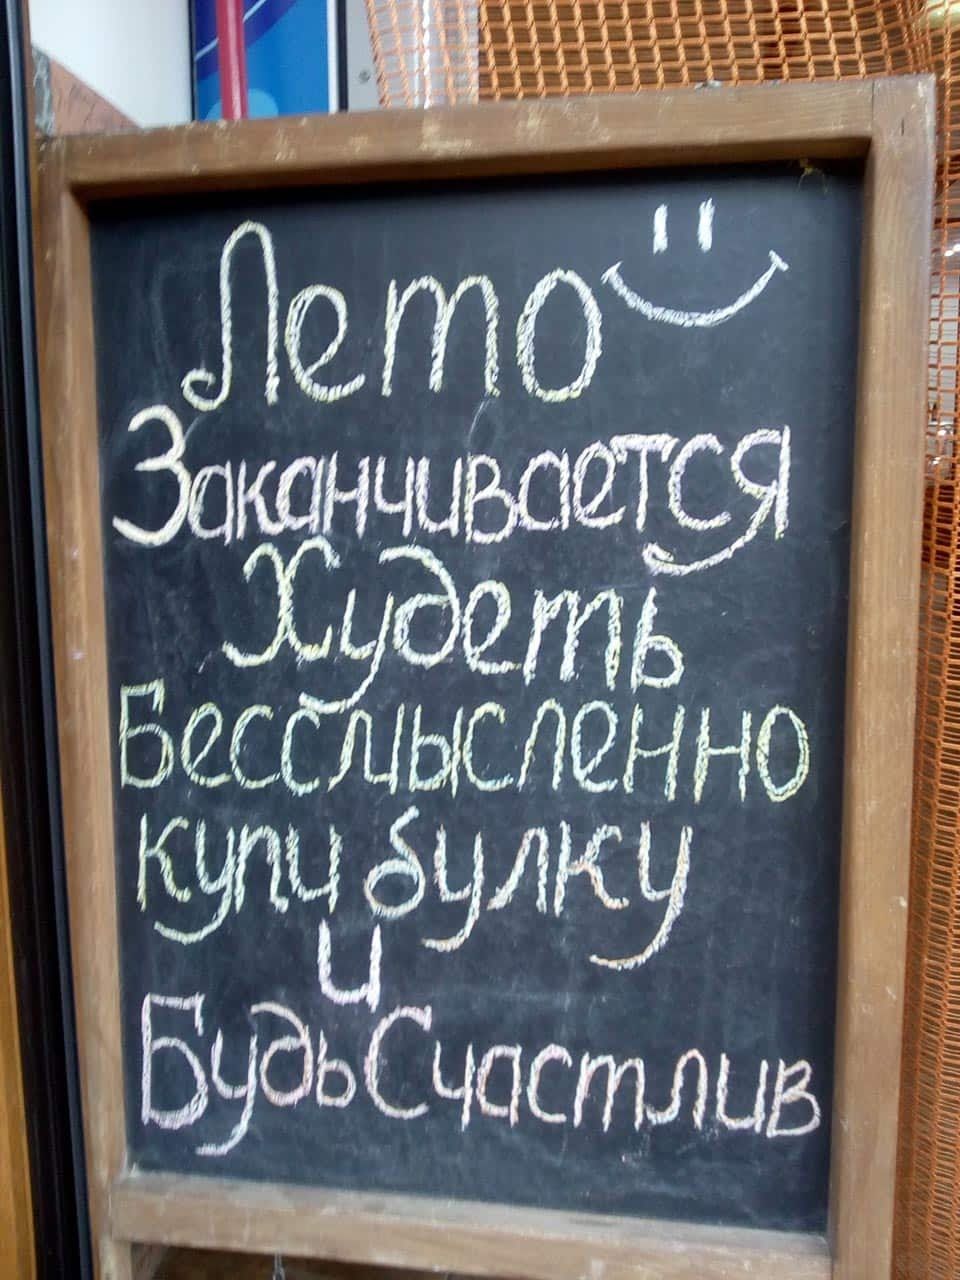 Лето
Заканчивается
Худеть
Бессмысленно
купи булку
и
Будь Счастлив